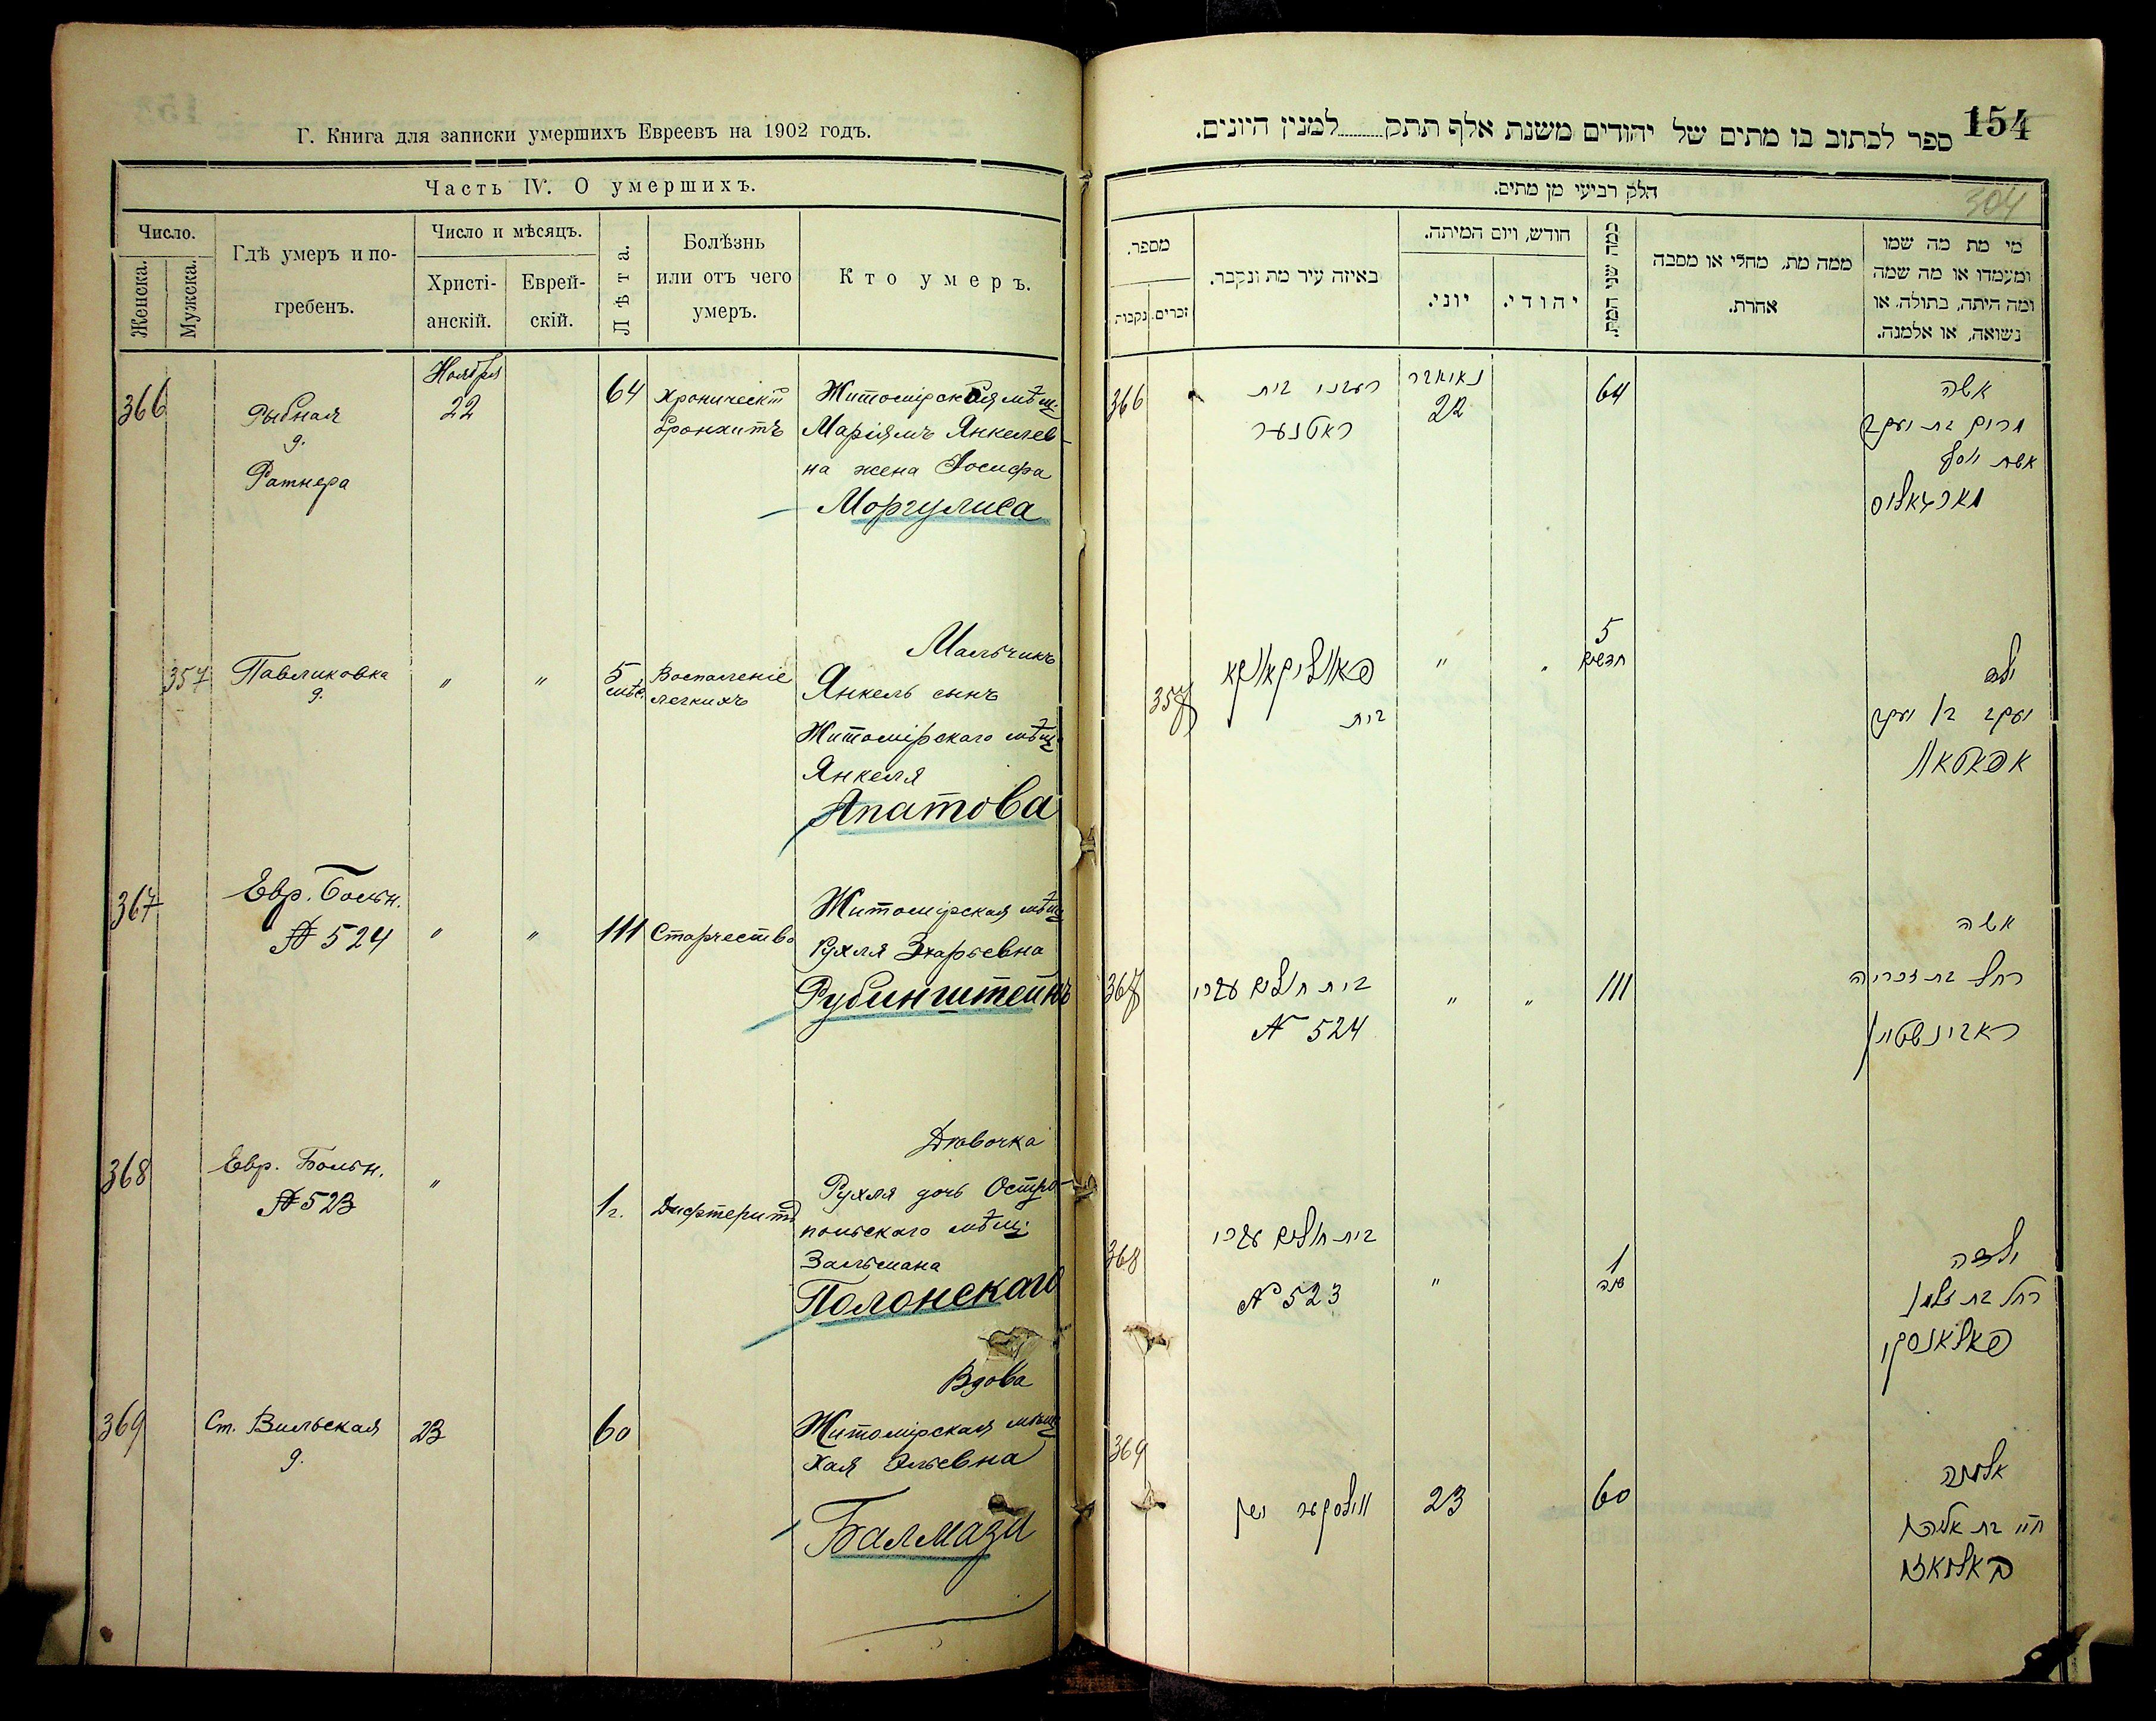 Г. Книга для записки умершихъ Евреевъ на 1902 годъ.
Часть IV. О умершихъ.
Число.
Женска.
Мужска.
Гдѣ умеръ и по-
гребенъ.
Число и мѣсяцъ.
Христі-
анскій.
Еврей-
скій.
Лѣта.
Болѣзнь
или отъ чего
умеръ.
Кто умеръ.
366
Рыбная
д.
Ратнера
Ноября
22
64
Хроническ
бронхитъ
Житомірская мѣщ.
Маріямъ Янкелев-
на жена Іосифа
Моргулиса
357
Павликовка
д.
"
"
5
мѣс.
Воспаленіе
легкихъ
Мальчикъ
Янкель сынъ
Житомірскаго мѣщ.
Янкеля
Апатова
367
Евр. Больн.
№ 524
"
"
111
Старчество
Житомірская мѣщ
Рухля Зхарьевна
Рубинштейнъ
368
Евр. Больн.
№ 523
"
1 г.
Дифтеритъ
Дѣвочка
Рухля дочь Остро-
польскаго мѣщ.
Зальмана
Полонскаго
369
Ст. Вильская
д.
23
60
Вдова
Житомірская мѣщ
Хая Эльевна
Балмази
154
304
ספר לכתוב בו מתים של יהודים משנת אלף תתק........למנין היונים.
חלק רביעי מן מתים.
מספר.
זכרים.
נקבות
באיזה עיר מת ונקבר.
חודש, ויום המיתה.
יוני.
יהודי.
כמה שני המת.
ממה מת, מחלי או מסבה
אחרת.
מי מת מה שמו
ומעמדו או מה שמה
ומה היתה, בתולה, או
נשואה, או אלמנה.
366
בית
ראטנער
נאיאבר
22
64
אשה
מרים בת יעקב
אשת יוסף
מארגאליס
357
פאווליקאווקא
בית
"
"
5
חדשים
ילד
יעקב בן יעקב
אפאטאוו
367
בית חולים עברי
№ 524
"
"
111
אשה
רחל בת זכריה
ראבינשטיין
368
בית חולים עברי
№ 523
"
1
שנה
ילדה
רחל בת זלמן
פאלאנסקי
369
ווילסקער
23
60
אלמנה
חיי בת אליהו
באלמאזי